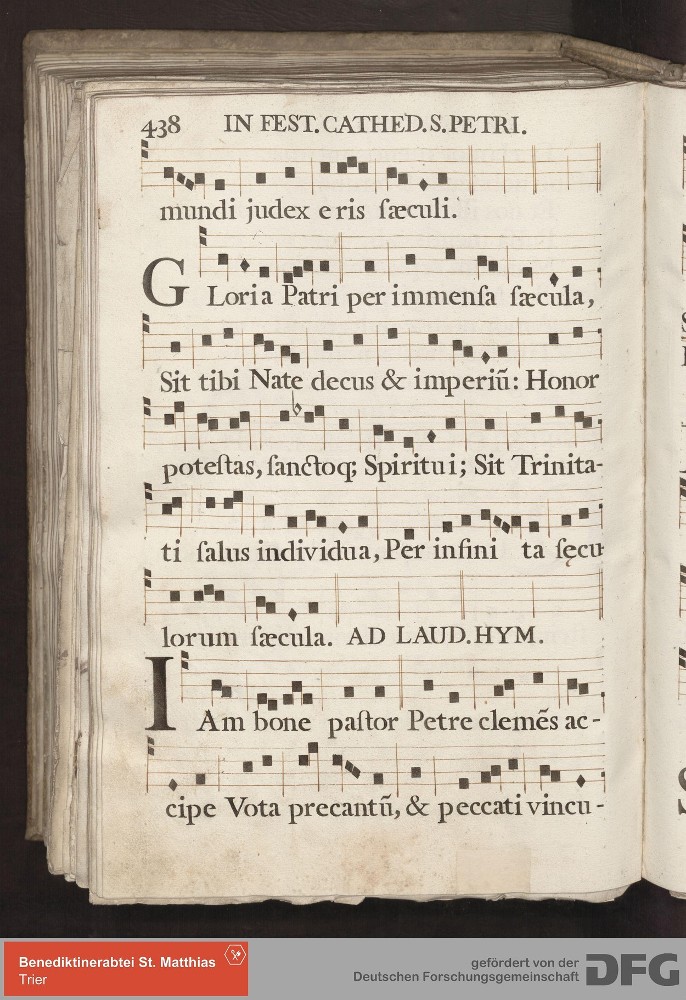 438 IN FEST. CATHED. S. PETRI.
mundi judex eris ſæculi.
GLoria Patri per immenſa ſæcula,
Sit tibi Nate decus & imperiũ: Honor
poteſtas, ſanctoq; Spiritui; Sit Trinita-
ti ſalus individua, Per infini ta ſęcu-
lorum ſæcula. AD LAUD. HYM.
IAm bone paſtor Petre clemẽs ac-
cipe Vota precantũ, & peccati vincu-
Benediktinerabtei St. Matthias
Trier
gefördert von der
Deutschen Forschungsgemeinschaft
DFG